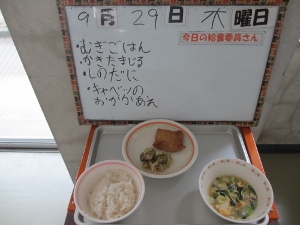 9月29日 木曜日
今日の給食委員さん
・むぎごはん
・かきたまじる
・しのだに
・キャベツの
おかかあえ